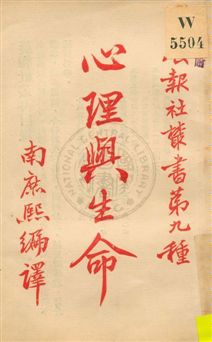 W
5504
報社叢書第九種
心理與生命
南庶熙編譯
NATIONAL CENTRAL LIBRARY